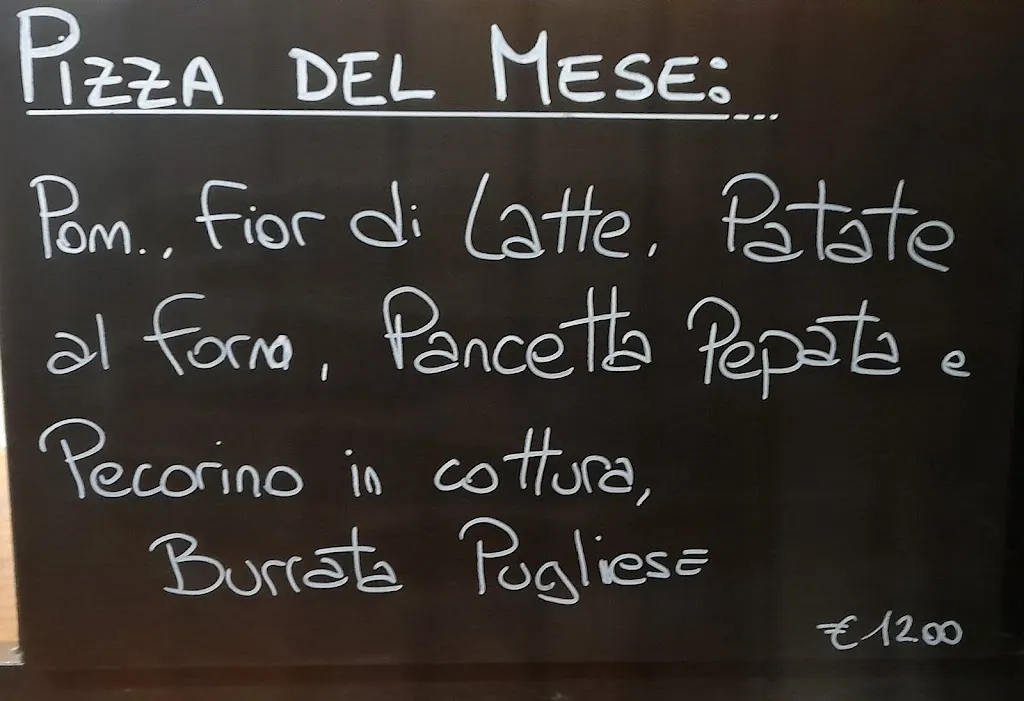 PIZZA DEL MESE:...
Pom., Fior di Latte, Patate
al forno, Pancetta Pepata e
Pecorino in cottura,
Burrata Pugliese
€ 1200